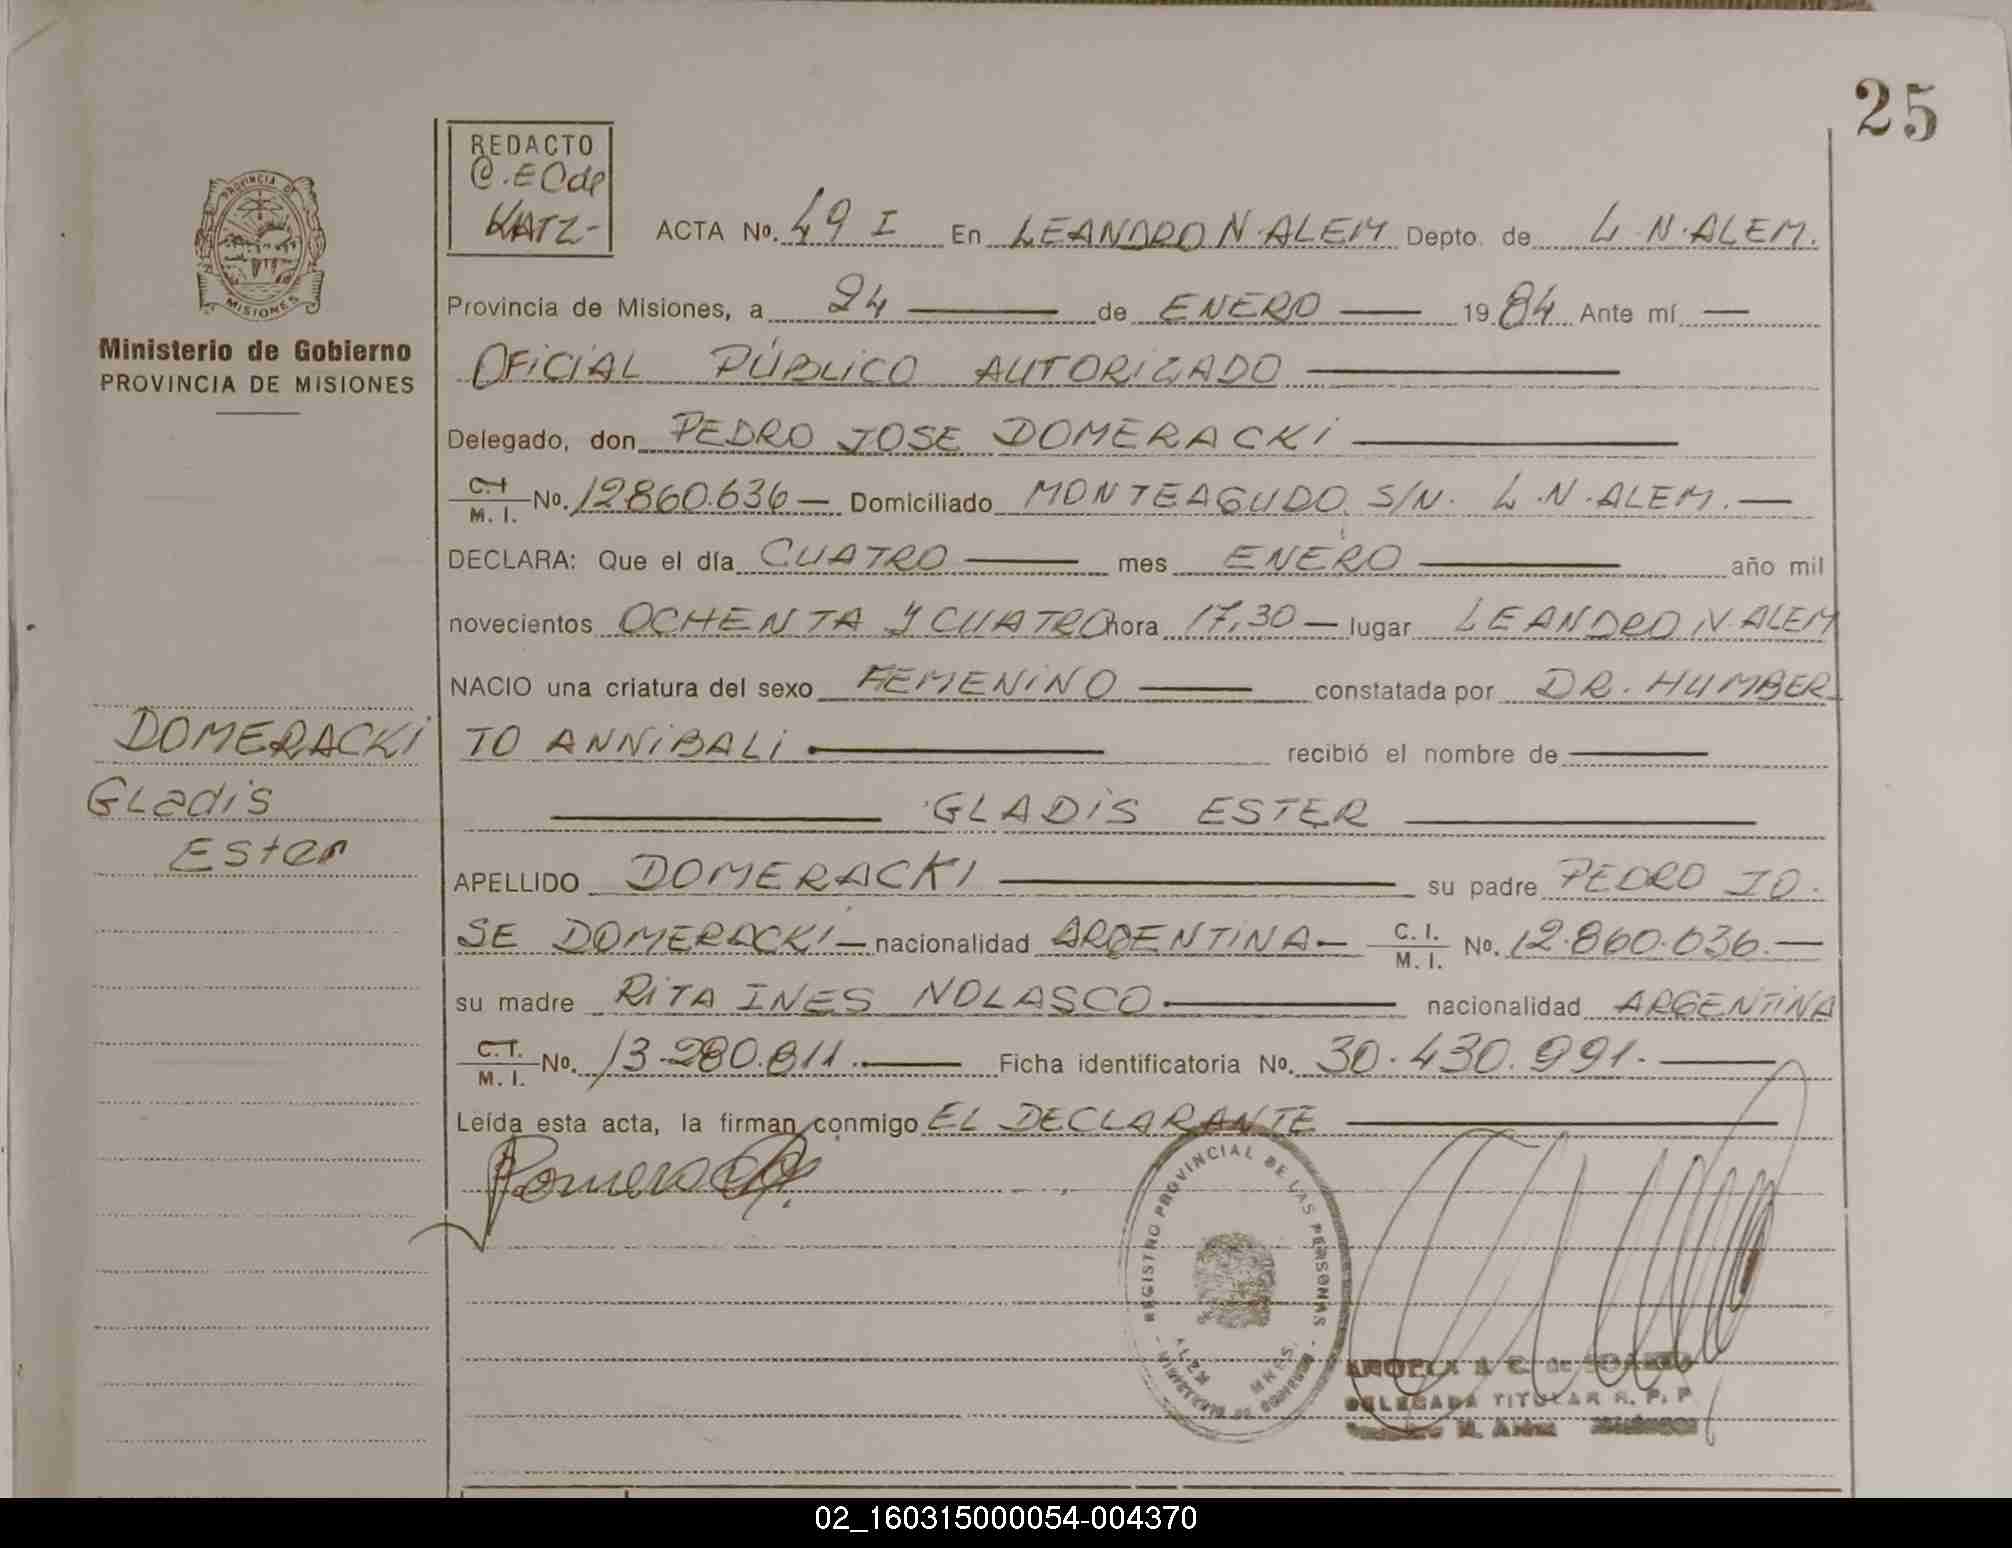 25
REDACTO
C. E. O de
KATZ-
ACTA No. 49 I En LEANDRO N. ALEM Depto. de L. N. ALEM.
PROVINCIA DE
MISIONES
Ministerio de Gobierno
PROVINCIA DE MISIONES
Provincia de Misiones, a 24 de ENERO 1984 Ante mí
OFICIAL PÚBLICO AUTORIZADO
Delegado, don PEDRO JOSE DOMERACKI
C.I. M. I. No. 12860.636 Domiciliado MONTEAGUDO S/N. L. N. ALEM.
DECLARA: Que el día CUATRO mes ENERO año mil
novecientos OCHENTA Y CUATRO hora 17,30 lugar LEANDRO N ALEM
NACIO una criatura del sexo FEMENINO constatada por DR. HUMBER-
TO ANNIBALI recibió el nombre de
GLADIS ESTER
DOMERACKI
Gladis
Ester
APELLIDO DOMERACKI su padre PEDRO JO-
SE DOMERACKI nacionalidad ARGENTINA C. I. M. I. No. 12.860.636.
su madre RITA INES NOLASCO nacionalidad ARGENTINA
C. I. M. I. No. 13.280.811. Ficha identificatoria No. 30.430.991.
Leída esta acta, la firman conmigo EL DECLARANTE
REGISTRO PROVINCIAL DE LAS PERSONAS
DELEGADA TITULAR R. P. P.
02_160315000054-004370